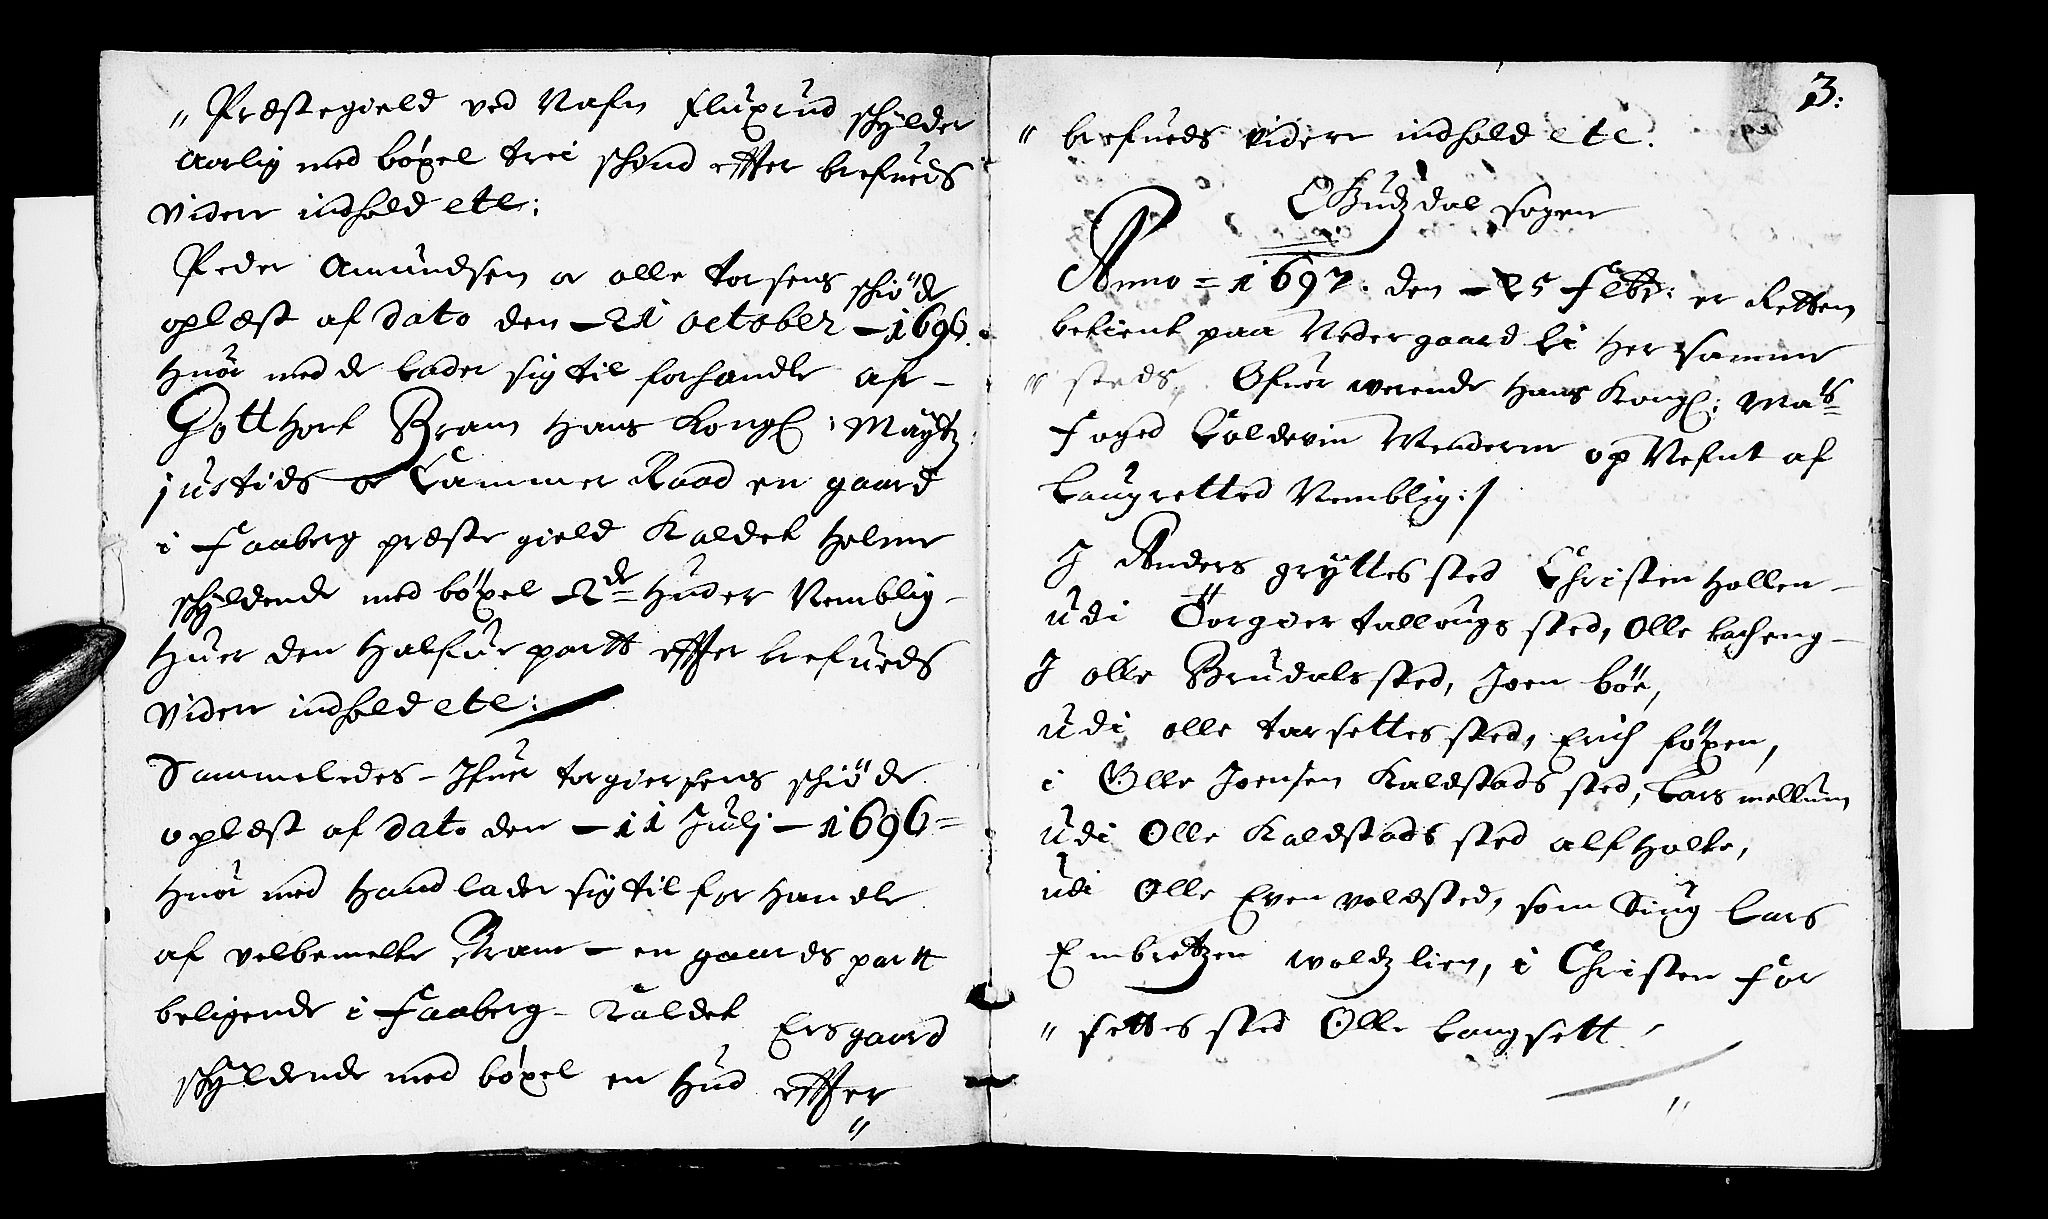 " Præstegield ved Nafn Fluxrud schylder
Aarlig med böxel trei schind effter brefueds
videre indhold etc:
Peder Amundsen oc olle torsens schiöde
oplæst af dato den - 21 october - 1696.
huor med de lader sig til forhandle af -
Gotthort Bram hans Kongl: Maÿtz:
justids oc Cammer Raad en gaard
i Faaberg præste gield Kaldet Holme
schÿldende med böxel - 2de huder Nemblig -
huer den halfue partt effter brefueds
videre indhold etc:
Sammeledes - Ifuer torgiersens schiöde
oplæst af dato den - 11 Julj - 1696 =
huor med hand lader sig til for handle
af velbemelte Bram - en gaards partt
beligende i Faaberg - Kaldet Ersgaard
schÿldende med böxel en hud effter
"
3:
" brefueds videre indhold etc.
Gudzdal sogen
Anno = 1697. den - 25 Febr: er Retten
betient paa Nedergaard Li her samme
" steds. Ofuer werende hans Kongl: Mas=
Foged Coldevin Wenderen op Nefnt af
Laugretted Nemblig: /
I Anders grÿttes sted Christen hollen -
udi Torgier tallougs sted, Olle kacheng -
I olle Brudals sted, Joen böe,
udi olle torsettes sted, Erich föxen,
i Olle Joensen Kaldstads sted, Lars mellum
udi Olle Kaldstads sted alf holte,
udi Olle Even voldsted, som Siug Lars
Embretzen woldz lien, i Christen for
" settes sted Olle Langsett
"